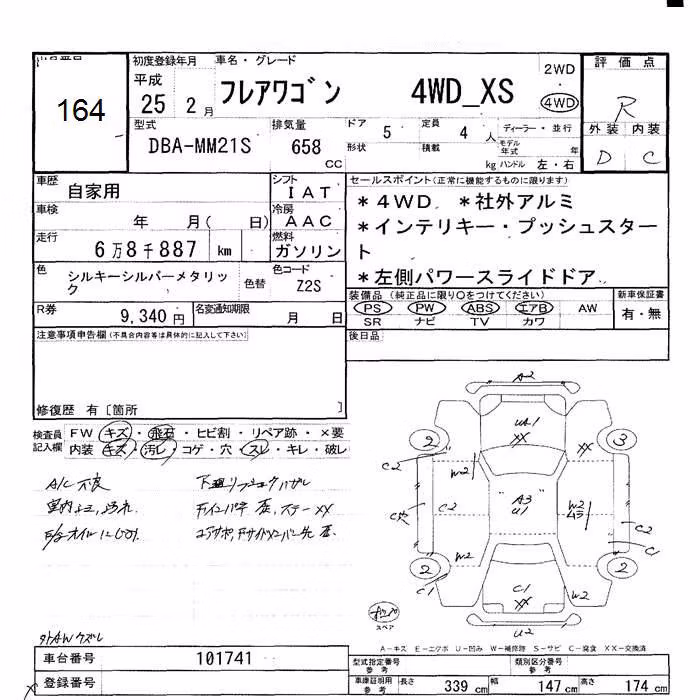 164
初度登録年月 車名・グレード
平成
25 2月
フレアワゴン 4WD_XS
2WD
4WD
評価点
R
外装 内装
D C
型式
DBA-MM21S
排気量
658
CC
ドア 5 定員 4 人
形状 積載 kg
ディーラー・並行
モデル年式 年
ハンドル 左・右
車歴 自家用
シフト IAT
車検 年 月( 日)
冷房 AAC
走行 6万8千887 km
燃料 ガソリン
色 シルキーシルバーメタリック
色替
色コード Z2S
R券 9,340円
名変通知期限 月 日
セールスポイント(正常に機能するものに限ります)
*4WD *社外アルミ
*インテリキー・プッシュスタート
*左側パワースライドドア
装備品(純正品に限り○をつけてください)
PS PW ABS エアB AW
SR ナビ TV カワ
新車保証書
有・無
後日品
注意事項申告欄(不具合内容等は具体的に記入して下さい)
修復歴 有〔箇所 〕
検査員記入欄
FW キズ・飛石・ヒビ割・リペア跡・×要
内装 キズ・汚レ・コゲ・穴・スレ・キレ・破レ
A/C不良
A2
UA1
XX
2
3
C2
W2
C2
A3
U1
W2
C2
C
W2
2
2
C1
C1
XX
W2
U2
スペア
A-キズ E-エクボ U-凹み W-補修跡 S-サビ C-腐食 XX-交換済
車台番号 101741
登録番号
型式指定番号 参考
類別区分番号 参考
車庫証明用 参考
長さ 339 cm 幅 147 cm 高さ 174 cm